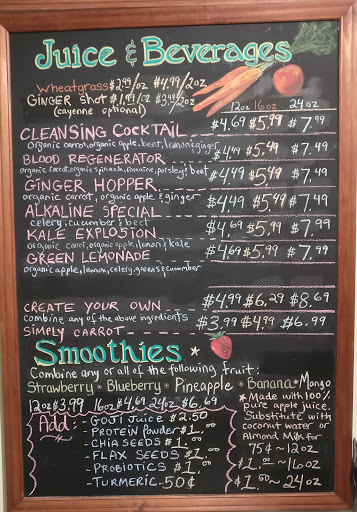 Juice & Beverages
Wheatgrass $2.99/oz $4.99/2oz
GINGER Shot $1.99/oz $3.99/2oz
(cayenne optional)
12oz 16oz 24oz
CLEANSING COCKTAIL $4.69 $5.99 $7.99
organic carrot, organic apple, beet, lemon & ginger
BLOOD REGENERATOR $4.49 $5.49 $7.49
organic carrot, organic spinach, romaine, parsley & beet
GINGER HOPPER $4.49 $5.49 $7.49
organic carrot, organic apple & ginger
ALKALINE SPECIAL $4.69 $5.99 $7.99
celery, cucumber & beet
KALE EXPLOSION $4.69 $5.99 $7.99
organic carrot, organic apple, lemon & kale
GREEN LEMONADE $4.69 $5.99 $7.99
organic apple, lemon, celery, greens & cucumber
CREATE YOUR OWN $4.99 $6.29 $8.69
Combine any of the above ingredients
SIMPLY CARROT $3.99 $4.99 $6.99
Smoothies *
Combine any or all of the following fruit:
Strawberry * Blueberry * Pineapple * Banana * Mango
12oz $3.99 16oz $4.69 24oz $6.69
Add:
- GOJI JUICE $2.50
- PROTEIN Powder $1.00
- CHIA SEEDS $1.00
- FLAX SEEDS $1.00
- PROBIOTICS $1.00
- TURMERIC - 50¢
* Made with 100%
pure apple juice.
Substitute with
coconut water or
Almond Milk for
75¢ ~ 12oz
$1.00 ~ 16oz
$1.50 ~ 24oz